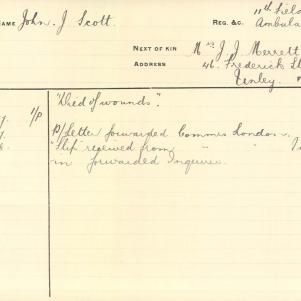 NAME John. J Scott. REG. &C. 11th Field
Ambula
NEXT OF KIN Mrs J. J Merrett
ADDRESS 46. Frederick St
F
1/p "Died of wounds".
P/Letter forwarded Commrs London
"Slip" received from " "
in forwarded Inquirer.